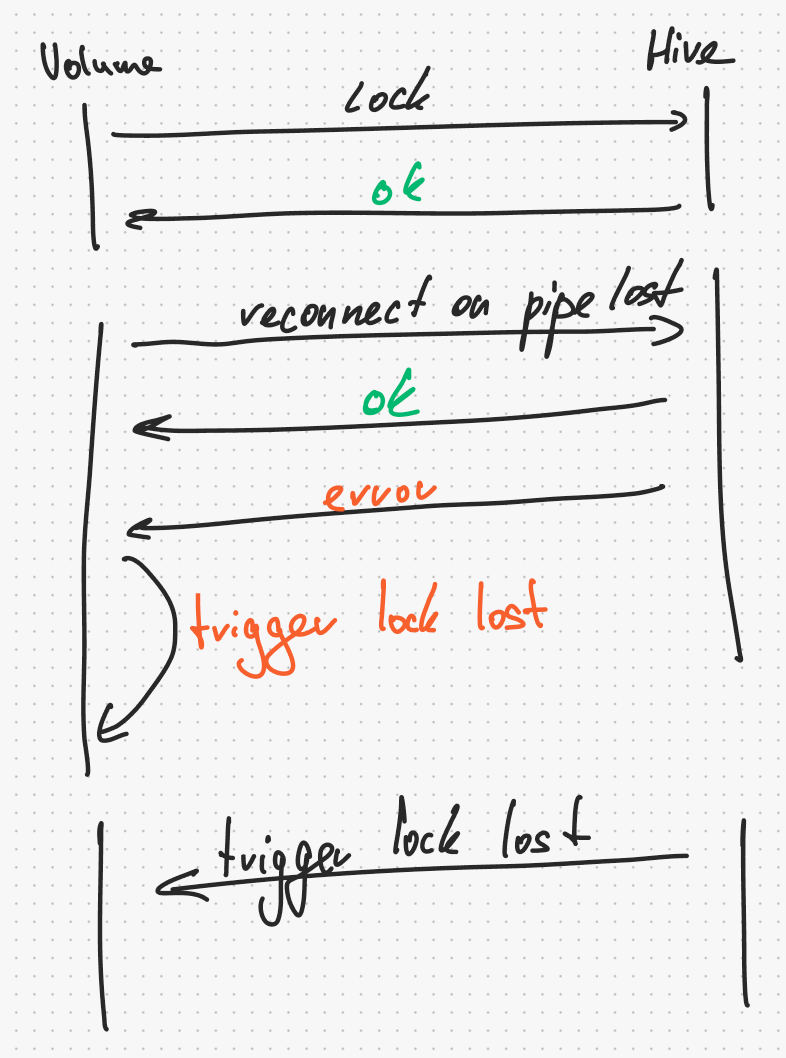 Volume
Hive
Lock
ok
reconnect on pipe lost
ok
error
trigger lock lost
trigger lock lost